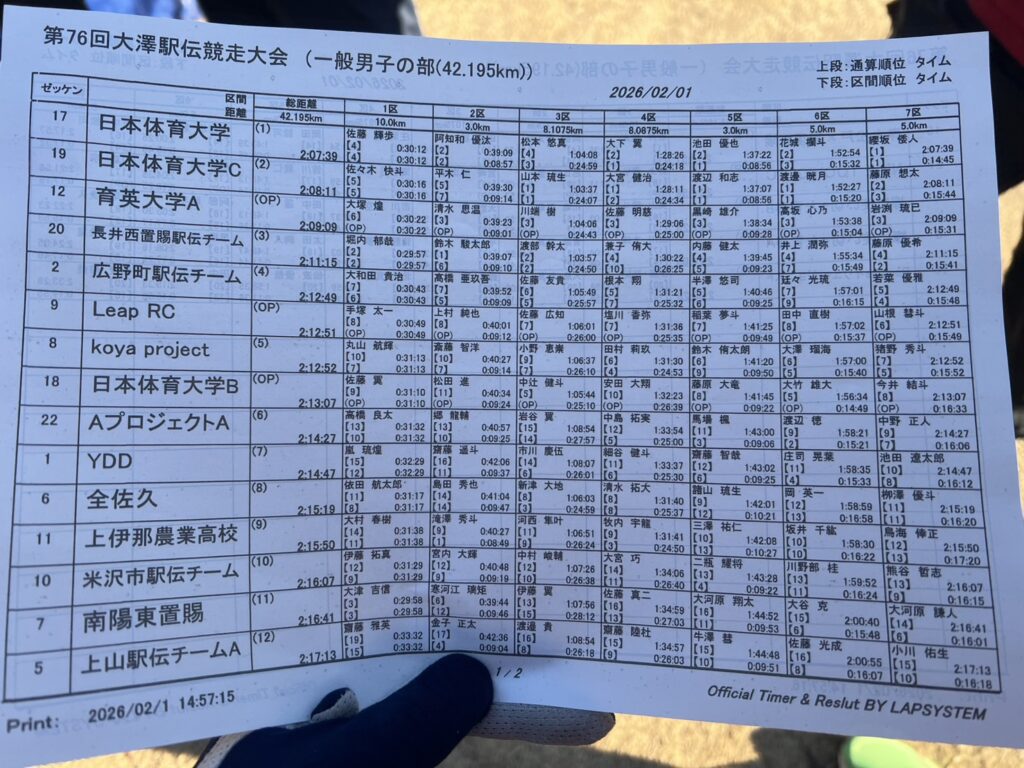 第76回大澤駅伝競走大会 （一般男子の部(42.195km)）
上段:通算順位 タイム
下段:区間順位 タイム
2026/02/01
ゼッケン 区間 総距離 1区 2区 3区 4区 5区 6区 7区
距離 42.195km 10.0km 3.0km 8.1075km 8.0875km 3.0km 5.0km 5.0km
17 日本体育大学 (1) 佐藤 輝歩 阿知和 優汰 松本 悠真 大下 翼 池田 優也 花城 櫂斗 櫻坂 倭人
[4] 0:30:12 [2] 0:39:09 [4] 1:04:08 [2] 1:28:26 [2] 1:37:22 [2] 1:52:54 [1] 2:07:39
2:07:39 [4] 0:30:12 [2] 0:08:57 [3] 0:24:59 [1] 0:24:18 [1] 0:08:56 [3] 0:15:32 [1] 0:14:45
19 日本体育大学C (2) 佐々木 快斗 平木 仁 山本 琉生 大宮 健治 渡辺 和志 渡邊 晄月 藤原 想太
[5] 0:30:16 [5] 0:39:30 [1] 1:03:37 [1] 1:28:11 [1] 1:37:07 [1] 1:52:27 [2] 2:08:11
2:08:11 [5] 0:30:16 [7] 0:09:14 [1] 0:24:07 [2] 0:24:34 [1] 0:08:56 [1] 0:15:20 [3] 0:15:44
12 育英大学A (OP) 大塚 煌 清水 思温 川端 樹 佐藤 明慈 黒崎 雄介 高坂 心乃 岩渕 琉已
[6] 0:30:22 [3] 0:39:23 [3] 1:04:06 [3] 1:29:06 [3] 1:38:34 [3] 1:53:38 [3] 2:09:09
2:09:09 (OP) 0:30:22 (OP) 0:09:01 (OP) 0:24:43 (OP) 0:25:00 (OP) 0:09:28 (OP) 0:15:04 (OP) 0:15:31
20 長井西置賜駅伝チーム (3) 堀内 郁哉 鈴木 駿太郎 渡部 幹太 兼子 侑大 内藤 健太 井上 潤弥 藤原 優希
[2] 0:29:57 [1] 0:39:07 [2] 1:03:57 [4] 1:30:22 [4] 1:39:45 [4] 1:55:34 [4] 2:11:15
2:11:15 [2] 0:29:57 [6] 0:09:10 [2] 0:24:50 [10] 0:26:25 [5] 0:09:23 [7] 0:15:49 [2] 0:15:41
2 広野町駅伝チーム (4) 大和田 貴治 高橋 亜玖吾 佐藤 友貴 根本 翔 半澤 悠司 廷々 光琉 若菜 優雅
[7] 0:30:43 [7] 0:39:52 [5] 1:05:49 [5] 1:31:21 [5] 1:40:46 [7] 1:57:01 [5] 2:12:49
2:12:49 [6] 0:30:43 [5] 0:09:09 [7] 0:25:57 [5] 0:25:32 [6] 0:09:25 [9] 0:16:15 [4] 0:15:48
9 Leap RC (OP) 手塚 太一 上村 純也 佐藤 広知 塩川 香弥 稲葉 夢斗 田中 直樹 山根 彗斗
[8] 0:30:49 [8] 0:40:01 [7] 1:06:01 [7] 1:31:36 [7] 1:41:25 [8] 1:57:02 [6] 2:12:51
2:12:51 (OP) 0:30:49 (OP) 0:09:12 (OP) 0:26:00 (OP) 0:25:35 (OP) 0:09:49 (OP) 0:15:37 (OP) 0:15:49
8 koya project (5) 丸山 航輝 斎藤 智洋 小野 恵崇 田村 莉玖 鈴木 侑太朗 大澤 瑠海 猪野 秀斗
[10] 0:31:13 [10] 0:40:27 [9] 1:06:37 [6] 1:31:30 [6] 1:41:20 [6] 1:57:00 [7] 2:12:52
2:12:52 [7] 0:31:13 [7] 0:09:14 [9] 0:26:10 [4] 0:24:53 [9] 0:09:50 [5] 0:15:40 [5] 0:15:52
18 日本体育大学B (OP) 佐藤 翼 松田 進 中辻 健斗 安田 大翔 藤原 大竜 大竹 雄大 今井 結斗
[9] 0:31:10 [11] 0:40:34 [5] 1:05:44 [10] 1:32:23 [8] 1:41:45 [5] 1:56:34 [8] 2:13:07
2:13:07 (OP) 0:31:10 (OP) 0:09:24 (OP) 0:25:10 (OP) 0:26:39 (OP) 0:09:22 (OP) 0:14:49 (OP) 0:16:33
22 AプロジェクトA (6) 高橋 良太 郷 龍輔 岩谷 翼 中島 拓実 馬場 楓 渡辺 徳 中野 正人
[13] 0:31:32 [13] 0:40:57 [15] 1:08:54 [12] 1:33:54 [11] 1:43:00 [9] 1:58:21 [9] 2:14:27
2:14:27 [10] 0:31:32 [10] 0:09:25 [14] 0:27:57 [5] 0:25:00 [3] 0:09:06 [2] 0:15:21 [7] 0:16:06
1 YDD (7) 嵐 琉煌 齋藤 遥斗 市川 慶伍 細谷 健斗 齋藤 智哉 庄司 晃葉 池田 遼太郎
[15] 0:32:29 [16] 0:42:06 [14] 1:08:07 [11] 1:33:37 [12] 1:43:02 [11] 1:58:35 [10] 2:14:47
2:14:47 [12] 0:32:29 [11] 0:09:37 [7] 0:26:01 [6] 0:25:30 [6] 0:09:25 [4] 0:15:33 [8] 0:16:12
6 全佐久 (8) 依田 航太郎 島田 秀也 新津 大地 清水 拓大 諸山 琉生 岡 英一 柳澤 優斗
[11] 0:31:17 [14] 0:41:04 [8] 1:06:03 [8] 1:31:40 [9] 1:42:01 [12] 1:58:59 [11] 2:15:19
2:15:19 [8] 0:31:17 [14] 0:09:47 [3] 0:24:59 [8] 0:25:37 [12] 0:10:21 [13] 0:16:58 [11] 0:16:20
11 上伊那農業高校 (9) 大村 春樹 滝澤 秀斗 河西 隼叶 牧内 宇龍 三澤 祐仁 坂井 千紘 鳥海 倖正
[14] 0:31:38 [9] 0:40:27 [11] 1:06:51 [9] 1:31:41 [10] 1:42:08 [10] 1:58:30 [12] 2:15:50
2:15:50 [11] 0:31:38 [1] 0:08:49 [9] 0:26:24 [3] 0:24:50 [13] 0:10:27 [10] 0:16:22 [13] 0:17:20
10 米沢市駅伝チーム (10) 伊藤 拓真 宮内 大輝 中村 崚輔 大宮 巧 二瓶 耀将 川野部 桂 熊谷 哲志
[12] 0:31:29 [12] 0:40:48 [12] 1:07:26 [14] 1:34:06 [13] 1:43:28 [13] 1:59:52 [13] 2:16:07
2:16:07 [9] 0:31:29 [9] 0:09:19 [10] 0:26:38 [11] 0:26:40 [4] 0:09:22 [11] 0:16:24 [9] 0:16:15
7 南陽東置賜 (11) 大津 吉信 寒河江 瑞矩 伊藤 翼 佐藤 真二 大河原 翔太 大谷 克 大河原 謙人
[3] 0:29:58 [6] 0:39:44 [13] 1:07:56 [16] 1:34:59 [16] 1:44:52 [15] 2:00:40 [14] 2:16:41
2:16:41 [3] 0:29:58 [12] 0:09:46 [15] 0:28:12 [13] 0:27:03 [11] 0:09:53 [6] 0:15:48 [6] 0:16:01
5 上山駅伝チームA (12) 齋藤 雅英 金子 正太 渡邉 貴 齋藤 陸杜 牛澤 彗 佐藤 光成 小川 佑生
[19] 0:33:32 [17] 0:42:36 [16] 1:08:54 [15] 1:34:57 [15] 1:44:48 [16] 2:00:55 [15] 2:17:13
2:17:13 [15] 0:33:32 [4] 0:09:04 [8] 0:26:18 [9] 0:26:03 [10] 0:09:51 [8] 0:16:07 [10] 0:16:18
1/2
Print: 2026/02/1 14:57:15
Official Timer & Reslut BY LAPSYSTEM